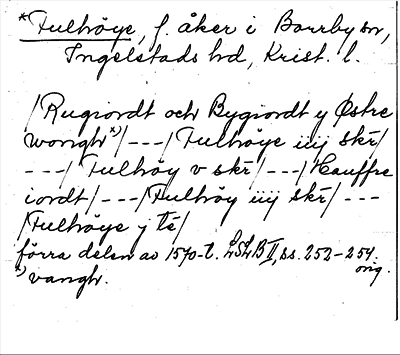 *Fulhöye, f. åker i Borrby sn,
Ingelstads hd, Krist. l.
/Rugiordt och Bygiordt y Østre
wongh*)/---/Fulhöye iiij skr/
---/Fulhöy v skr/---/Hauffre
iordt/---/Fulhöy iiij skr/---
/Fulhöye j tr/
förra delen av 1570-t. LSLB II, ss. 252-254.
orig.
*) vangh.